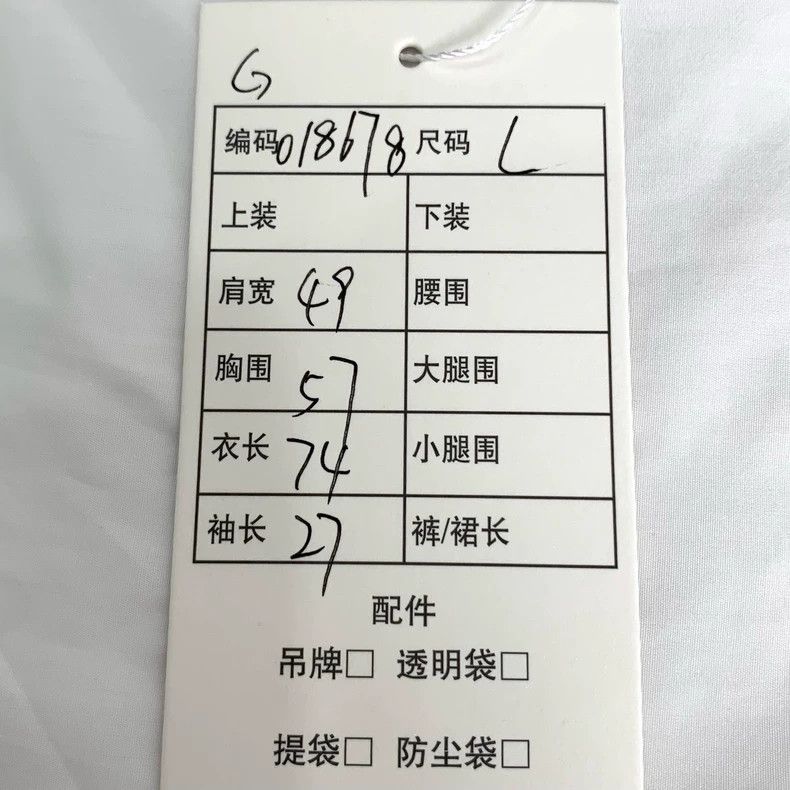 G
编码018678 尺码 L
上装 下装
肩宽 49 腰围
胸围 57 大腿围
衣长 74 小腿围
袖长 27 裤/裙长
配件
吊牌□ 透明袋□
提袋□ 防尘袋□